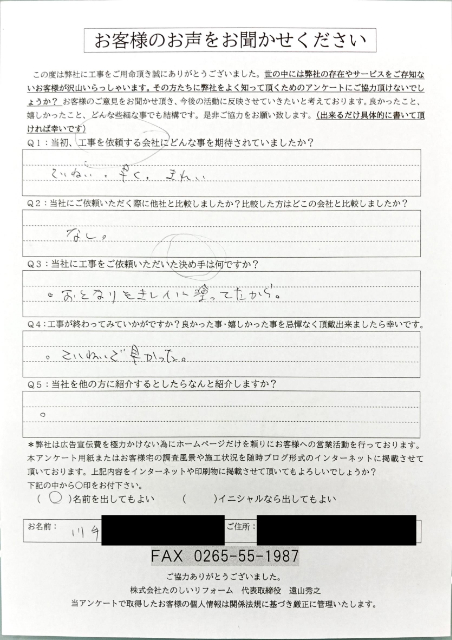 お客様のお声をお聞かせください
この度は弊社に工事をご用命頂き誠にありがとうございました。世の中には弊社の存在やサービスをご存知な
いお客様が沢山いらっしゃいます。その方たちに弊社をよく知って頂くためのアンケートにご協力頂けないでし
ょうか？ お客様のご意見をお聞かせ頂き、今後の活動に反映させていきたいと考えております。良かったこと、
嬉しかったこと、どんな些細な事でも結構です。是非ご協力をお願い致します。（出来るだけ具体的に書いて頂
ければ幸いです）
Q1：当初、工事を依頼する会社にどんな事を期待されていましたか？
ていねい、早く、きれい
Q2：当社にご依頼いただく際に他社と比較しましたか？比較した方はどこの会社と比較しましたか？
なし。
Q3：当社に工事をご依頼いただいた決め手は何ですか？
。おとなりをキレイに塗ってたから。
Q4：工事が終わってみていかがですか？良かった事・嬉しかった事を忌憚なく頂戴出来ましたら幸いです。
。ていねいで早かった。
Q5：当社を他の方に紹介するとしたらなんと紹介しますか？
。
＊弊社は広告宣伝費を極力かけない為にホームページだけを頼りにお客様への営業活動を行っております。
本アンケート用紙またはお客様宅の調査風景や施工状況を随時ブログ形式のインターネットに掲載させて
頂いております。上記内容をインターネットや印刷物に掲載させて頂いてもよろしいでしょうか？
下記の中から○印をお付下さい。
（ ○ ）名前を出してもよい （ ）イニシャルなら出してもよい
お名前： 川 ご住所：
FAX 0265-55-1987
ご協力ありがとうございました。
株式会社たのしいリフォーム 代表取締役 遠山秀之
当アンケートで取得したお客様の個人情報は関係法規に基づき厳正に管理いたします。